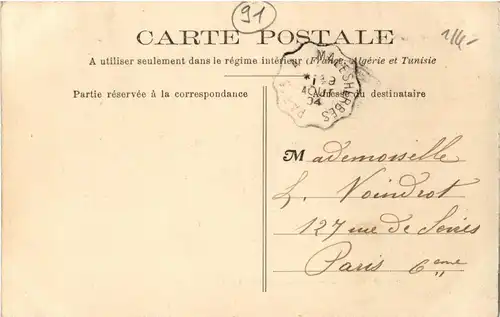 91
CARTE POSTALE
A utiliser seulement dans le régime intérieur (France, Algérie et Tunisie
Partie réservée à la correspondance
Adresse du destinataire
PARIS A MALESHERBES
AOUT
04
Mademoiselle
L. Voindrot
127 rue de
Paris 6eme